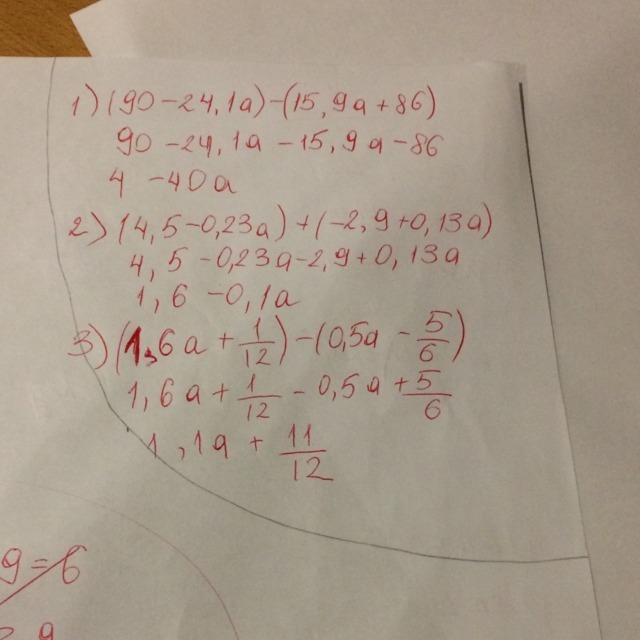 1) (90-24,1a)-(15,9a+86)
90-24,1a-15,9a-86
4-40a
2) (4,5-0,23a)+(-2,9+0,13a)
4,5-0,23a-2,9+0,13a
1,6-0,1a
3) (1,6a+1/12)-(0,5a-5/6)
1,6a+1/12-0,5a+5/6
1,1a+11/12
9=6